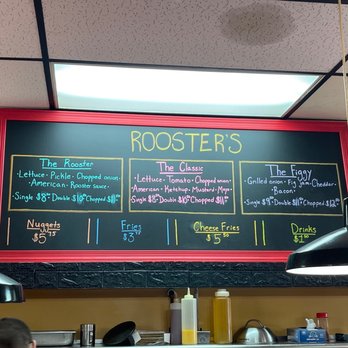 ROOSTER'S
The Rooster
· Lettuce · Pickle · Chopped onion ·
· American · Rooster sauce ·
Single $8 Double $10 Chopped
The Classic
· Lettuce · Tomato · Chopped onion ·
· American · Ketchup · Mustard · Mayo ·
Single $8 Double $10 Chopped
The Figgy
· Grilled onion · Fig jam · Cheddar ·
· Bacon ·
Single $9 Double Chopped $12
Nuggets
$5
Fries
$3
Cheese Fries
$5.50
Drinks
$1.50